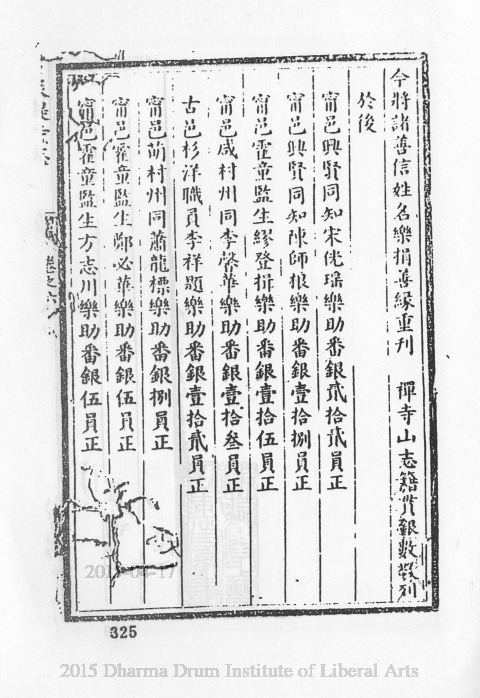 今將諸善信姓名樂捐善緣重刊 禪寺山志籍貫銀數敬列
於後
甯邑興賢同知宋侊瑤樂助番銀貳拾貳員正
甯邑興賢同知陳師根樂助番銀壹拾捌員正
甯邑霍童監生繆登揖樂助番銀壹拾伍員正
甯邑咸村州同李馨華樂助番銀壹拾叁員正
古邑杉洋職員李祥題樂助番銀壹拾貳員正
甯邑莇村州同蕭龍標樂助番銀捌員正
甯邑霍童監生鄭必華樂助番銀伍員正
甯邑霍童監生方志川樂助番銀伍員正
卷之六
325
2015 Dharma Drum Institute of Liberal Arts